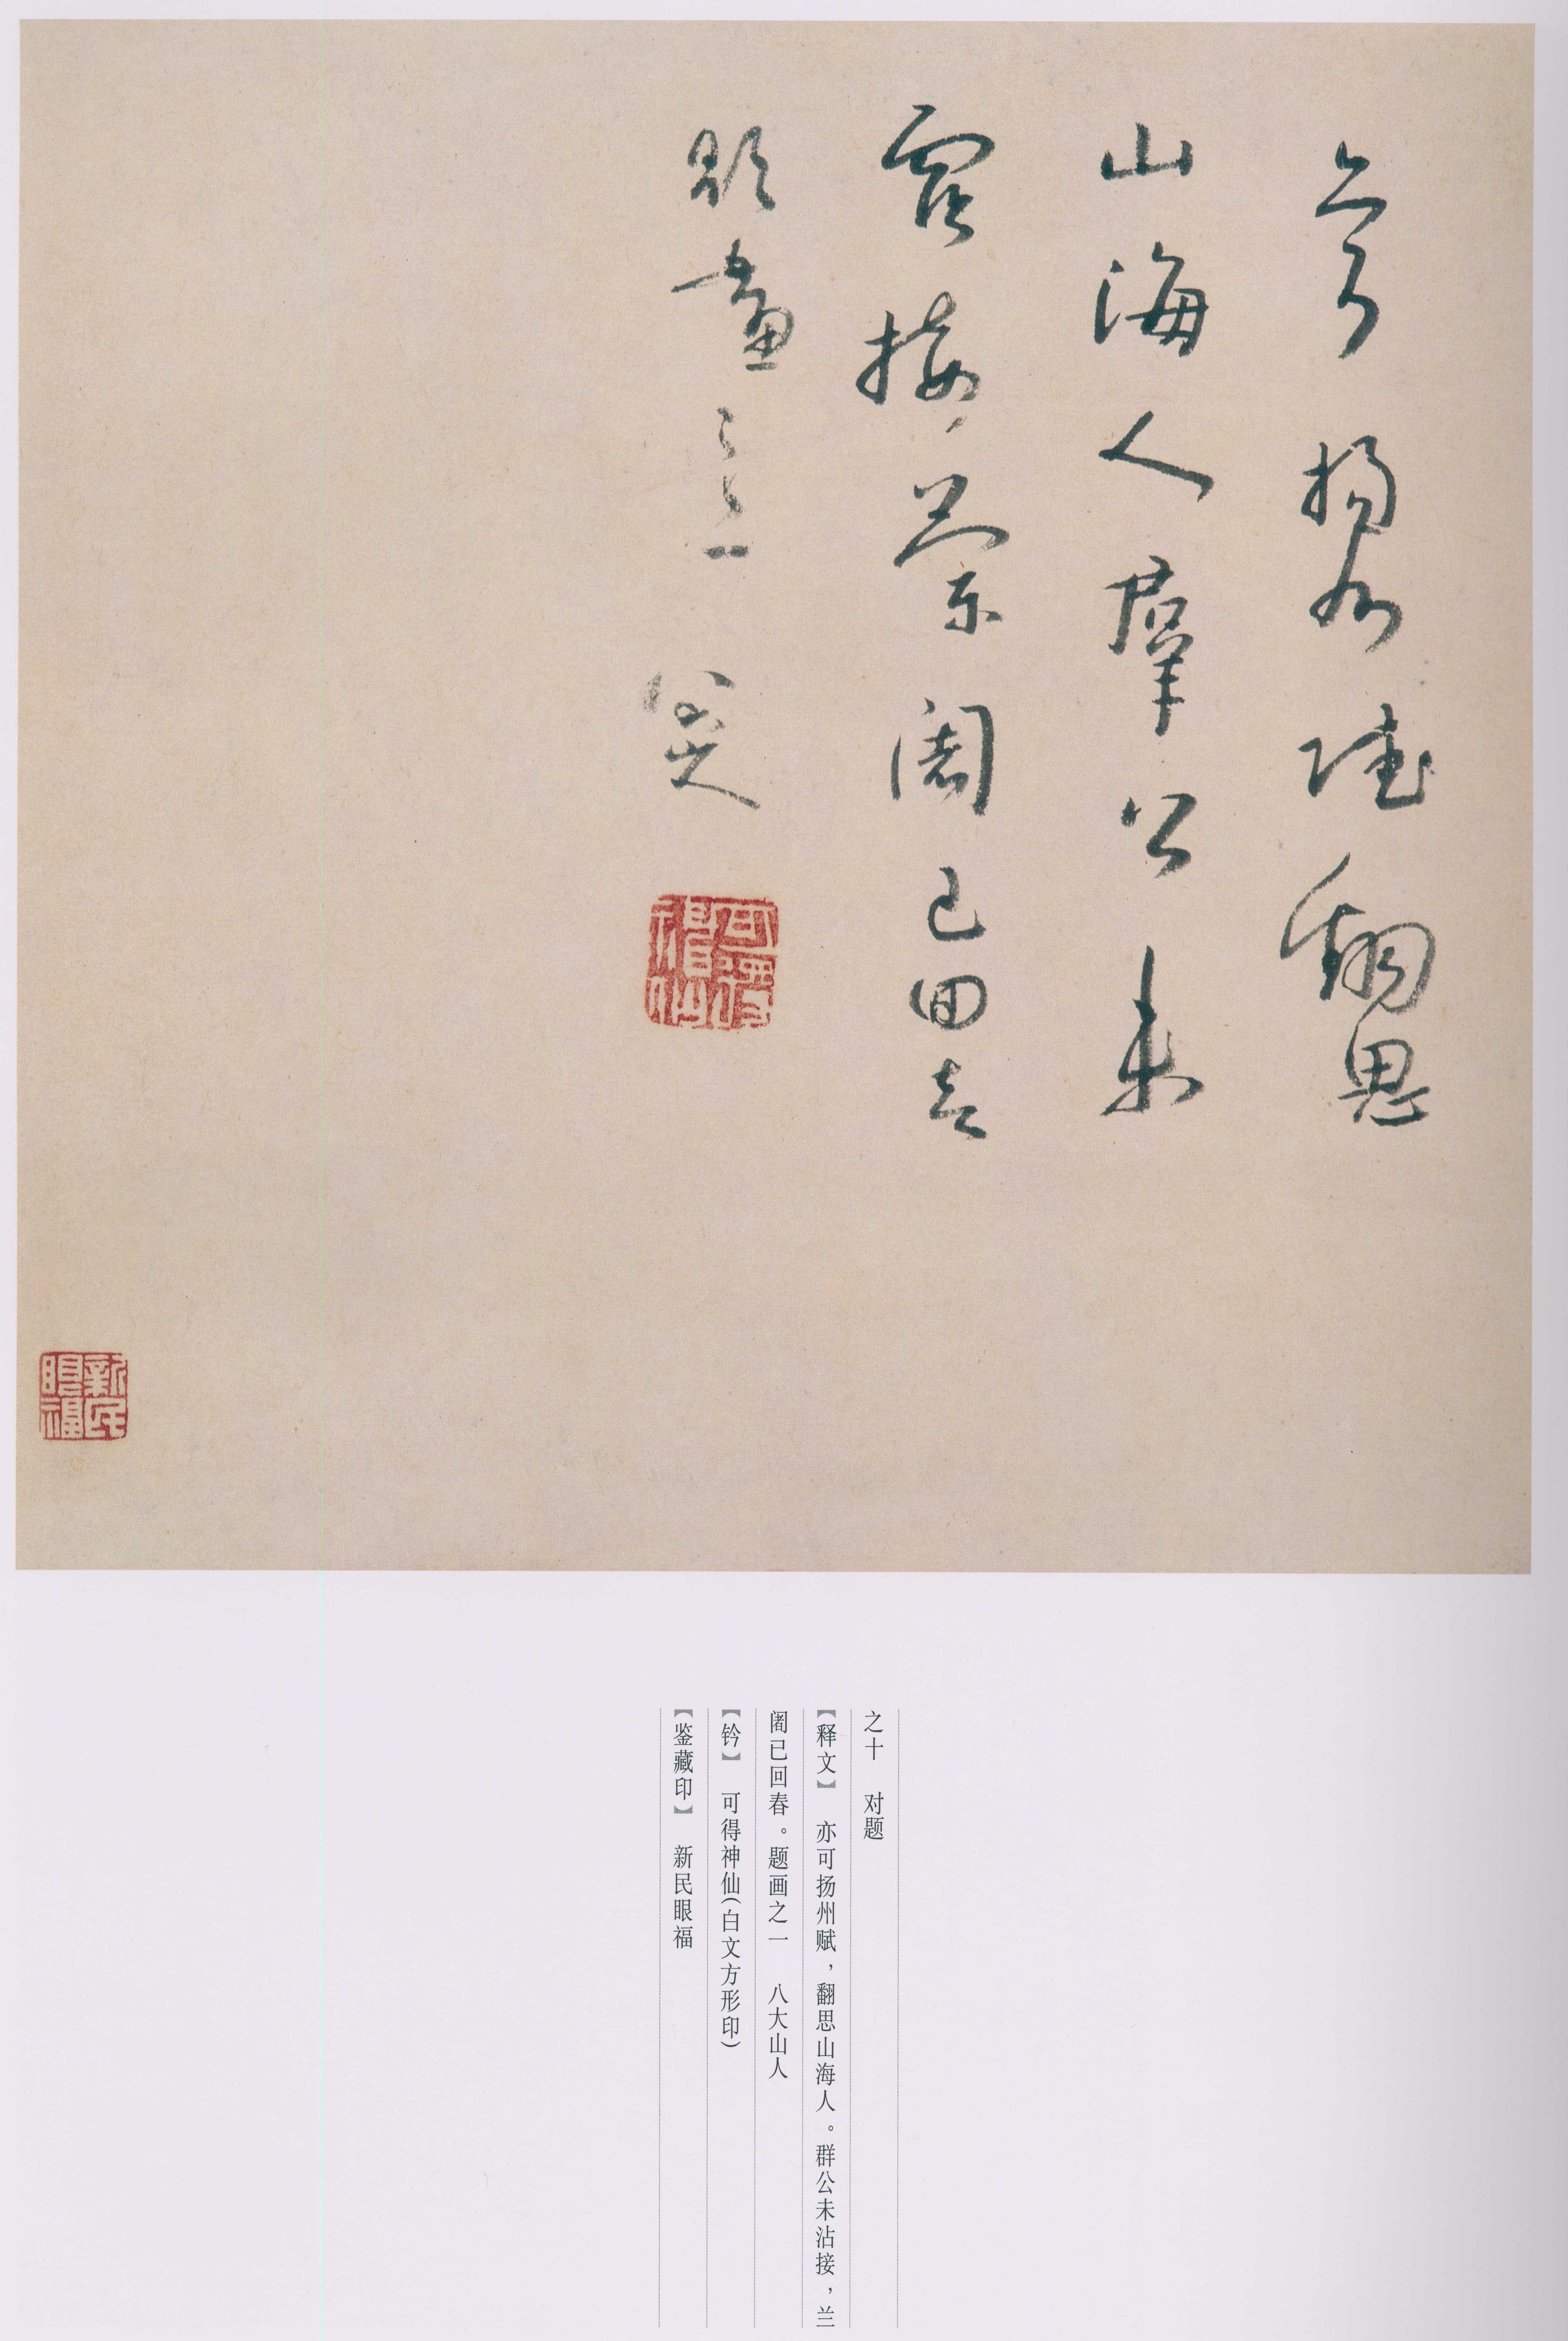 亦可揚州賦翻思
山海人羣公未
霑接蘭闍已回春
題畫之一 八大山人
可得神仙
新民眼福
之十 对题
【释文】 亦可扬州赋，翻思山海人。群公未沾接，兰
阇已回春。题画之一 八大山人
【钤】 可得神仙（白文方形印）
【鉴藏印】 新民眼福